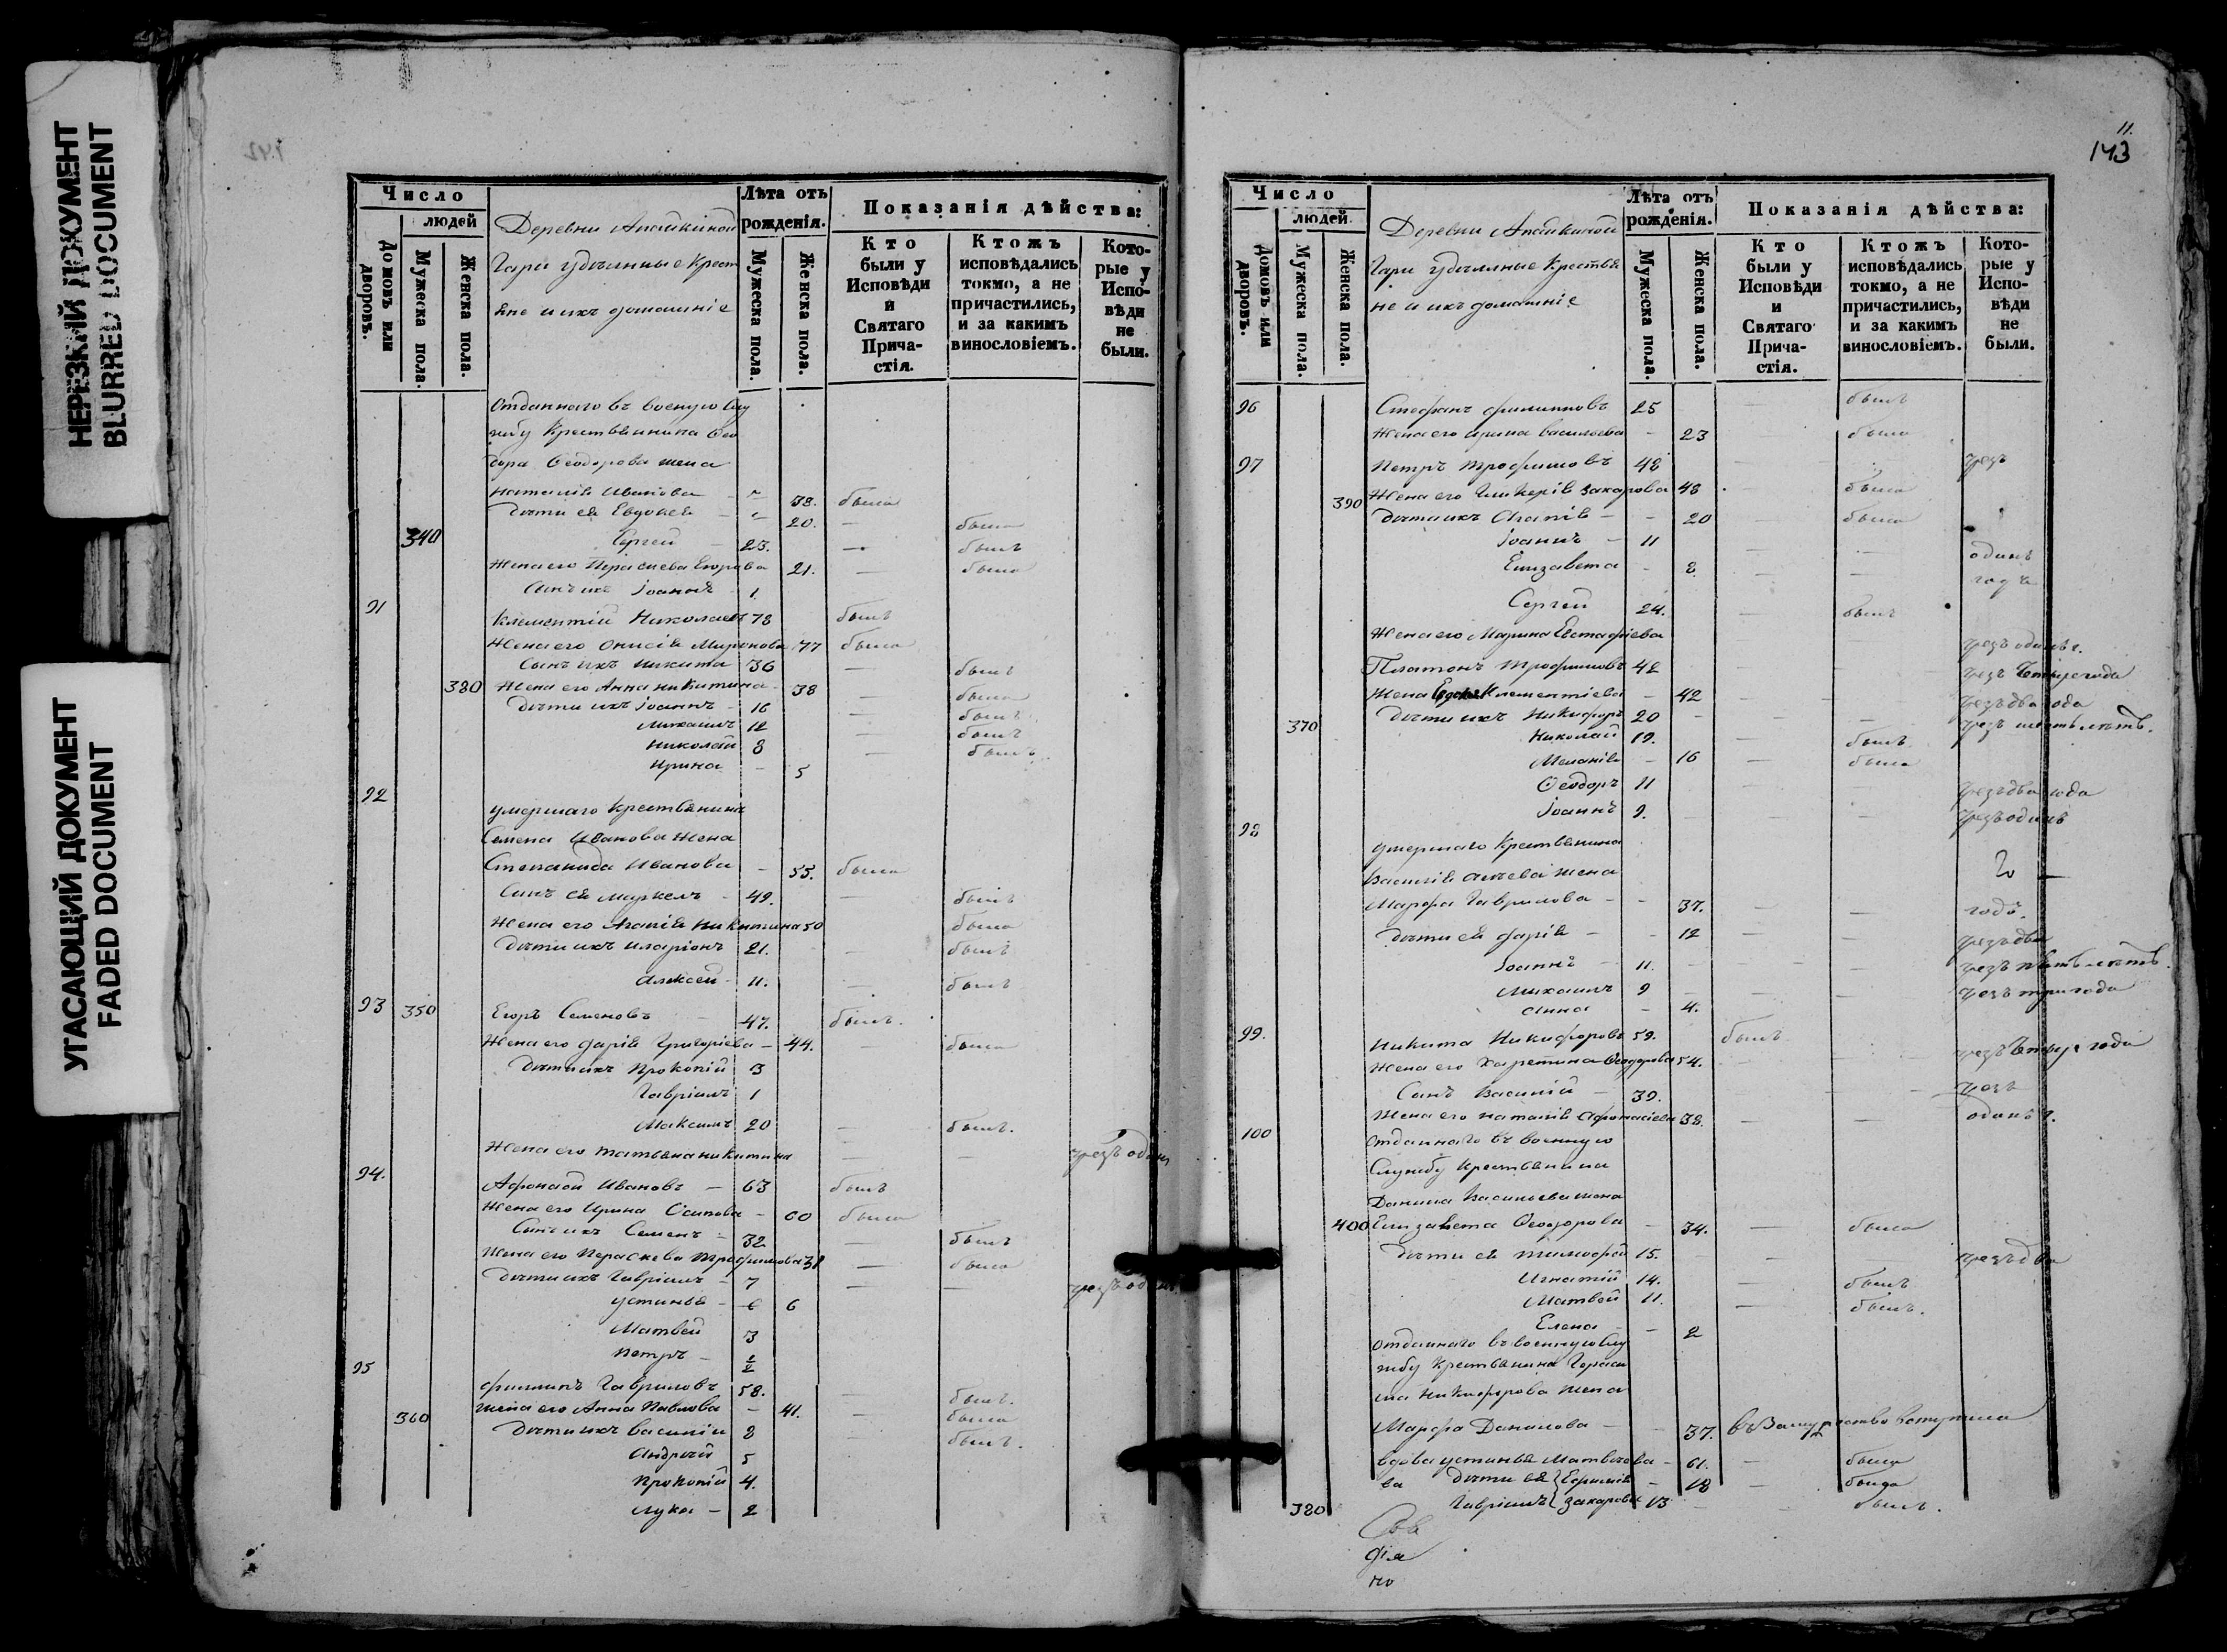 НЕРЕЗКИЙ ДОКУМЕНТ
BLURRED DOCUMENT
УГАСАЮЩИЙ ДОКУМЕНТ
FADED DOCUMENT
142
Число
людей
Домовъ или дворовъ.
Мужеска пола.
Женска пола.
Деревни
Гари удѣльные Крестья
не и ихъ домашніе
Лѣта отъ рожденія.
Мужеска пола.
Женска пола.
Показанія дѣйства:
Кто были у Исповѣди и Святаго Причастія.
Ктожъ исповѣдались токмо, а не причастились, и за какимъ винословіемъ.
Которые у Исповѣди не были.
Отданнаго въ военную слу
жбу Крестьянина Ѳео
дора Ѳеодорова жена
Наталія Иванова - 38. была
дѣти ея Евдокея - 20. — была
340 Сергей 23. — былъ
Жена его Параскева Егорова 21. — была
Сынъ ихъ Іоаннъ 1
91 Климентій Николаевъ 78 былъ
Жена его Онисія Миронова 77 была
Сынъ ихъ Никита 36 — былъ
380 Жена его Анна Никитина 38 — была
дѣти ихъ Іоаннъ 16 — былъ
Михаилъ 12 — былъ
Николай 8 — былъ
Ирина - 5
92 умершаго Крестьянина
Семена Иванова жена
Степанида Иванова - 55. была
Сынъ ея Маркелъ 49. — былъ
Жена его Агапія Никитина 50 — была
дѣти ихъ Иларіонъ 21. — былъ
Алексей 11. — былъ
93 350 Егоръ Семеновъ 47. былъ.
Жена его Дарія Григоріева - 44. — была
дѣти ихъ Прокопій 3
Гавріилъ 1
Максимъ 20 — былъ.
Жена его Татьяна Никитина — — чрезъ одинъ
94. Афонасій Ивановъ — 63 былъ
Жена его Ирина Осипова - 60 была
Сынъ ихъ Семенъ - 32 — былъ
Жена его Параскева Трофимова 31 — была
дѣти ихъ Гавріилъ - 7 — — чрезъ одинъ
Устинья - 6
Матвей 3
Петръ - ½
95 Филиппъ Гавриловъ 58. — былъ.
360 жена его Анна Павлова - 41. — была
дѣти ихъ Василій 8 — былъ.
Андрей 5
Прокопій 4.
Лука - 2
11.
143
Число
людей
Домовъ или дворовъ.
Мужеска пола.
Женска пола.
Деревни
Гари удѣльные Крестья
не и ихъ домашніе
Лѣта отъ рожденія.
Мужеска пола.
Женска пола.
Показанія дѣйства:
Кто были у Исповѣди и Святаго Причастія.
Ктожъ исповѣдались токмо, а не причастились, и за какимъ винословіемъ.
Которые у Исповѣди не были.
96 Стефанъ Филипповъ 25 — былъ
Жена его Ирина Васильева - 23 — была
97 Петръ Трофимовъ 48 — чрезъ
390 Жена его Гликерія Захарова 48 — была
дѣти ихъ Агапія - - 20 — была
Іоаннъ - 11 — — одинъ
Елизавета - 8. — — годъ
Сергей 24. — былъ
Жена его Марина Евстафіева чрезъ одинъ г.
Платонъ Трофимовъ 42 чрезъ четыре года
Жена Климентіева - 42 — — чрезъ два года
370 дѣти ихъ Никифоръ 20 - — — чрезъ шесть лѣтъ.
Николай 19. — былъ
Меланія - 16 — была
Ѳеодоръ 11 — — чрезъ два года
Іоаннъ 9. — — чрезъ одинъ
98 умершаго Крестьянина
Василія жена
Марфа Гаврилова - - 37. — — годъ.
дѣти ея Дарія - - 12 — — чрезъ два
Іоаннъ - 11. — — чрезъ пять лѣтъ.
Михаилъ 9 — — чрезъ три года
Анна - 4.
99. Никита Никифоровъ 59. былъ
Жена его Харетина Ѳеодорова 54. — чрезъ четыре года
Сынъ Василій - 39. — чрезъ
Жена его Наталія Афонасіева 38. — — одинъ г.
100 Отданнаго въ военную
Службу Крестьянина
Данила Васильева жена
400 Елизавета Ѳеодорова - 34. — была
дѣти ея Тимофей 15. — чрезъ два
Игнатій 14. — былъ
Матвей 11. — былъ.
Елена - 2
Отданнаго въ военную слу
жбу Крестьянина Гераси
ма Никифорова жена
Марфа Данилова - 37. въ Замужество вступила
вдова Устинья Матвеева - 61. — была
ва дѣти ея Ефимія - 18 — была
380 Гавріилъ Захаровы 13 - былъ.